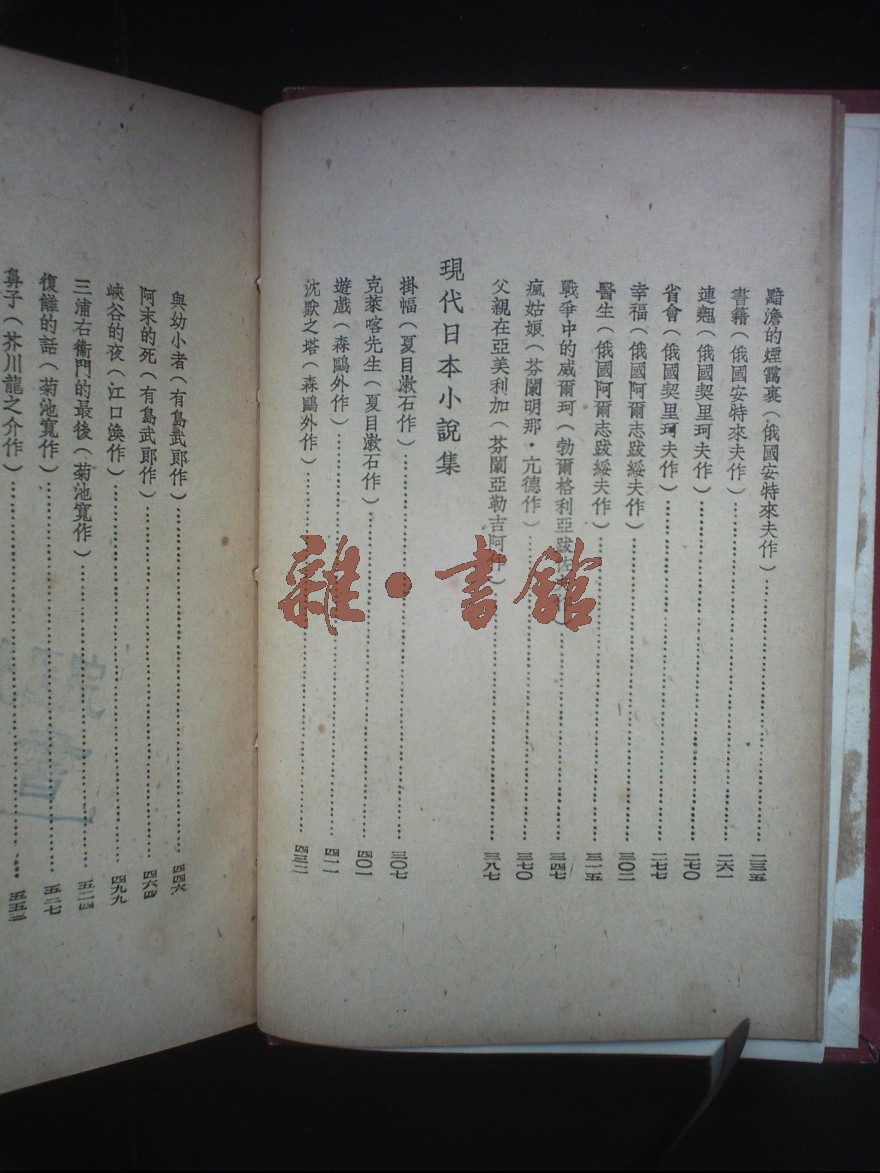 黯澹的煙靄裏(俄國安特來夫作)………二三五
書籍(俄國安特來夫作)………二六一
連翹(俄國契里珂夫作)………二七〇
省會(俄國契里珂夫作)………二七七
幸福(俄國阿爾志跋綏夫作)………三〇二
醫生(俄國阿爾志跋綏夫作)………三一五
戰爭中的威爾珂(勃爾格利亞跋佐夫作)………三四七
瘋姑娘(芬蘭明那・亢德作)………三七〇
父親在亞美利加(芬蘭亞勒吉阿作)………三八七
現代日本小說集
掛幅(夏目漱石作)………三〇七
克萊喀先生(夏目漱石作)………四〇一
遊戲(森鷗外作)………四一一
沈默之塔(森鷗外作)………四三二
與幼小者(有島武郎作)………四四六
阿末的死(有島武郎作)………四六四
峽谷的夜(江口渙作)………四九九
三浦右衞門的最後(菊池寬作)………五一四
復讎的話(菊池寬作)………五二七
鼻子(芥川龍之介作)………五五
雜・書館